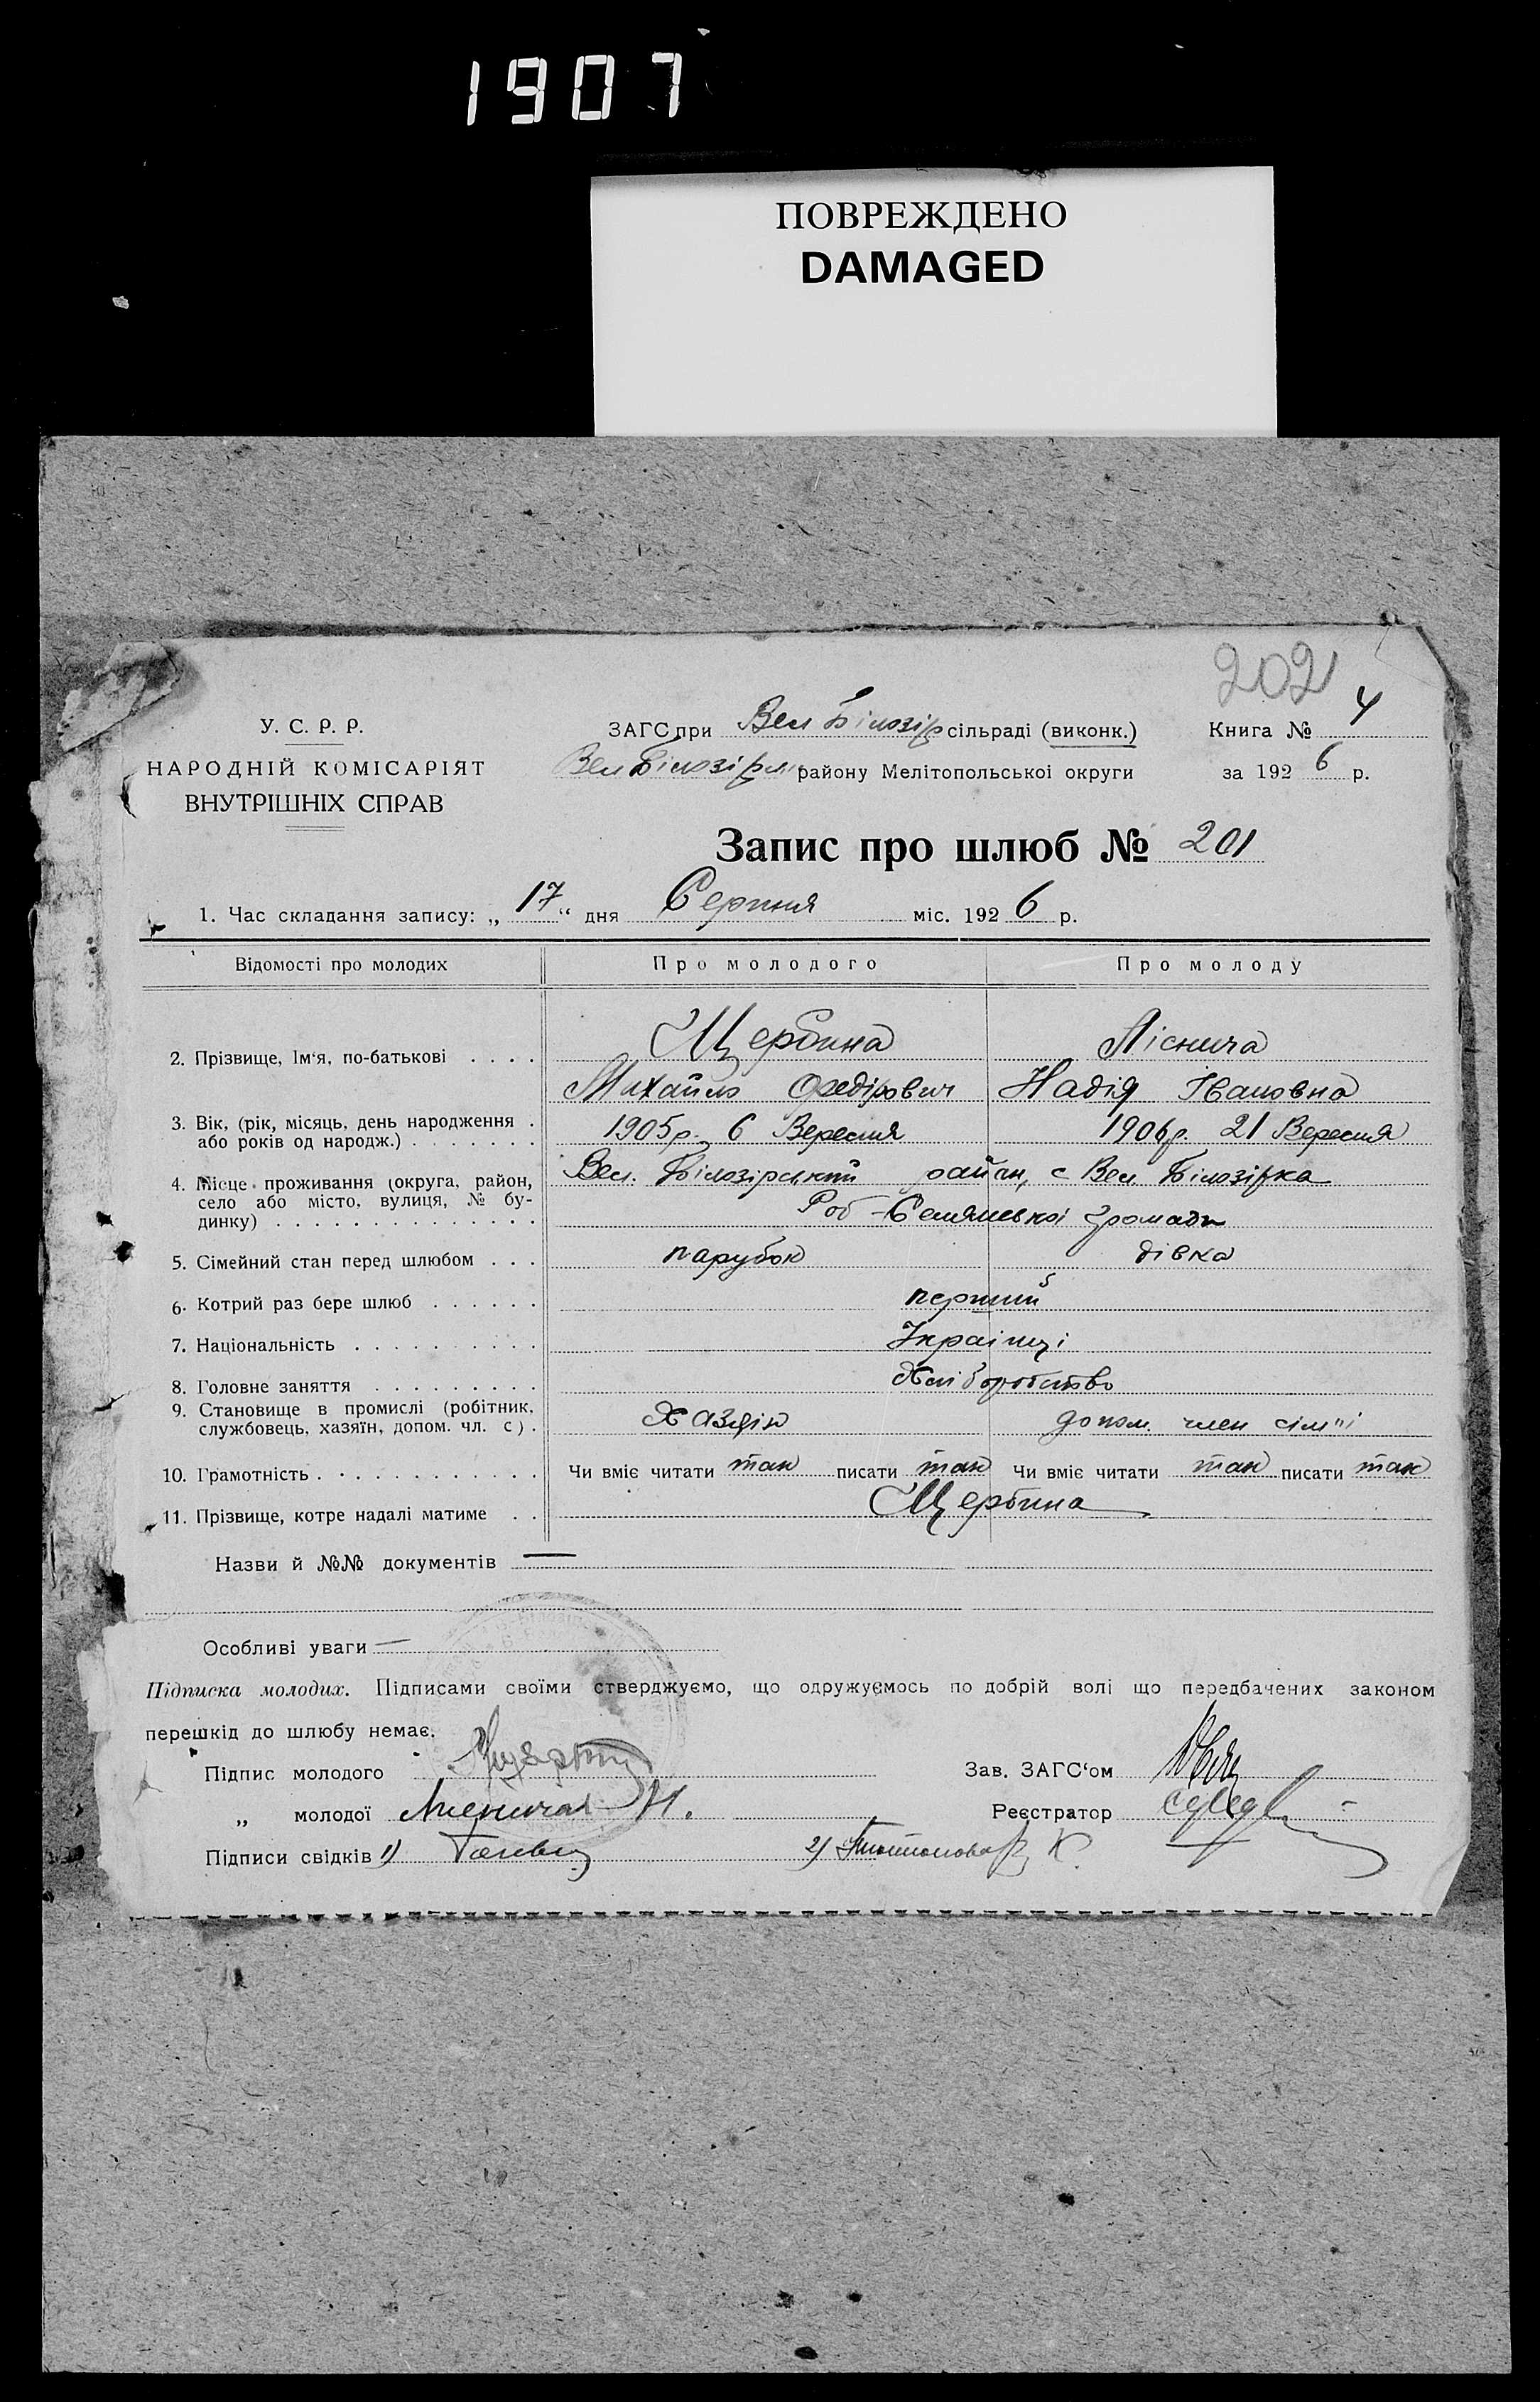 1907
ПОВРЕЖДЕНО
DAMAGED
202
У. С. Р. Р.
НАРОДНІЙ КОМІСАРІЯТ
ВНУТРІШНІХ СПРАВ
ЗАГС при Вел Білозір сільраді (виконк.)
Книга № 4
Вел Білозірськ району Мелітопольської округи
за 1926 р.
Запис про шлюб № 201
1. Час складання запису: „17“ дня Серпня міс. 1926 р.
Відомості про молодих Про молодого Про молоду
2. Прізвище, Ім‘я, по-батькові . . . . Щербина Ліснича
Михайло Федірович Надія Івановна
3. Вік, (рік, місяць, день народження . або років од народж.) . . . . . . . 1905р. 6 Вересня 1906р. 21 Вересня
4. Місце проживання (округа, район, село або місто, вулиця, № бу-динку) . . . . . . . . . . . . . . Вел. Білозірський район, с Вел Білозірка
Роб-Селянської громади
5. Сімейний стан перед шлюбом . . . парубок дівка
6. Котрий раз бере шлюб . . . . . . перший
7. Національність . . . . . . . . . . Українці
8. Головне заняття . . . . . . . . . Хліборобство
9. Становище в промислі (робітник, службовець, хазяїн, допом. чл. с) . Хазяін допом. член сімʼі
10. Грамотність . . . . . . . . . . . . Чи вміє читати так писати так Чи вміє читати так писати так
11. Прізвище, котре надалі матиме . . Щербина
Назви й №№ документів —
Особливі уваги —
Підписка молодих. Підписами своїми стверджуємо, що одружуємось по добрій волі що передбачених законом
перешкід до шлюбу немає.
Підпис молодого
Зав. ЗАГС‘ом
„ молодої Лисничая Н.
Реєстратор
Підписи свідків 1) 2)